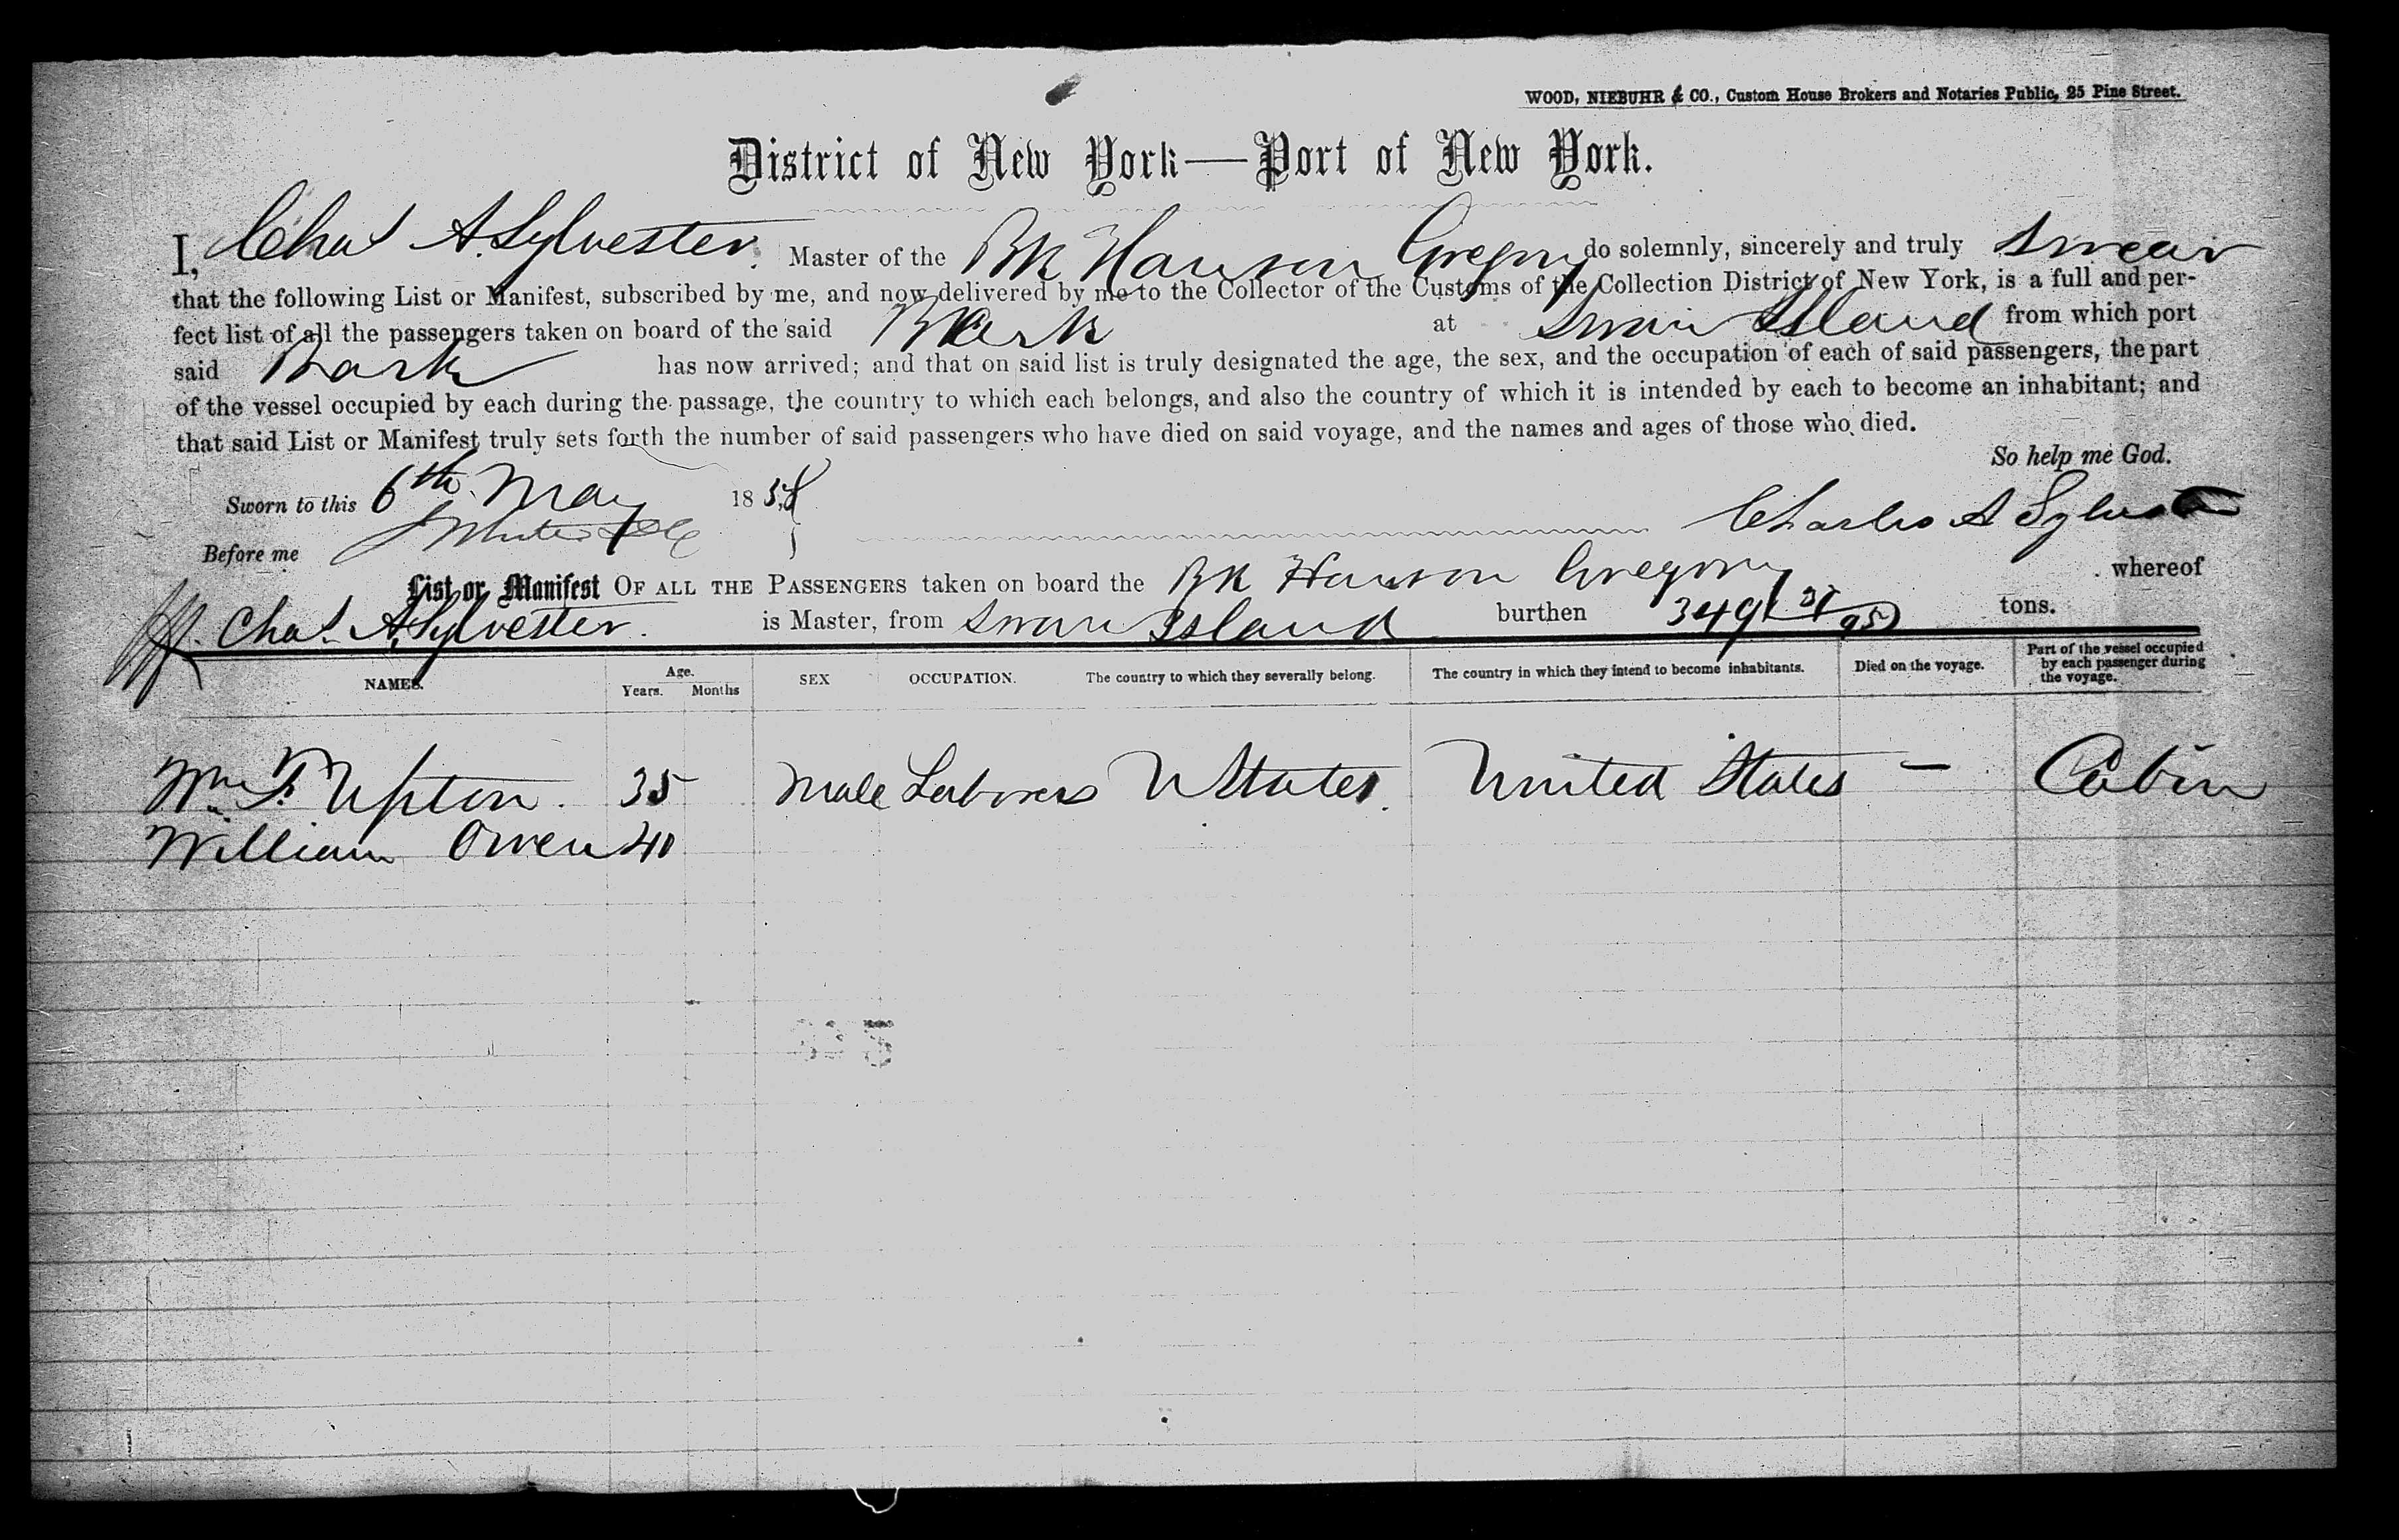 WOOD, NIEBUHR & CO., Custom House Brokers and Notaries Public, 25 Pine Street.
District of New York—Port of New York.
I, Chas A. Sylvester. Master of the Bk Hanson Gregory do solemnly, sincerely and truly swear
that the following List or Manifest, subscribed by me, and now delivered by me to the Collector of the Customs of the Collection District of New York, is a full and per-
fect list of all the passengers taken on board of the said Bark at Swan Island from which port
said Bark has now arrived; and that on said list is truly designated the age, the sex, and the occupation of each of said passengers, the part
of the vessel occupied by each during the passage, the country to which each belongs, and also the country of which it is intended by each to become an inhabitant; and
that said List or Manifest truly sets forth the number of said passengers who have died on said voyage, and the names and ages of those who died.
So help me God.
Sworn to this 6th May 1858
Charles A Sylvester
Before me
List or Manifest OF ALL THE PASSENGERS taken on board the Bk Hanson Gregory whereof
Chas. A. Sylvester. is Master, from Swan Island burthen 349 tons.
NAMES. Age. Years. Months SEX OCCUPATION. The country to which they severally belong. The country in which they intend to become inhabitants. Died on the voyage. Part of the vessel occupied by each passenger during the voyage.
Wm F. Upton. 35 Male Laborers U States. United States — Cabin
William Owen 40